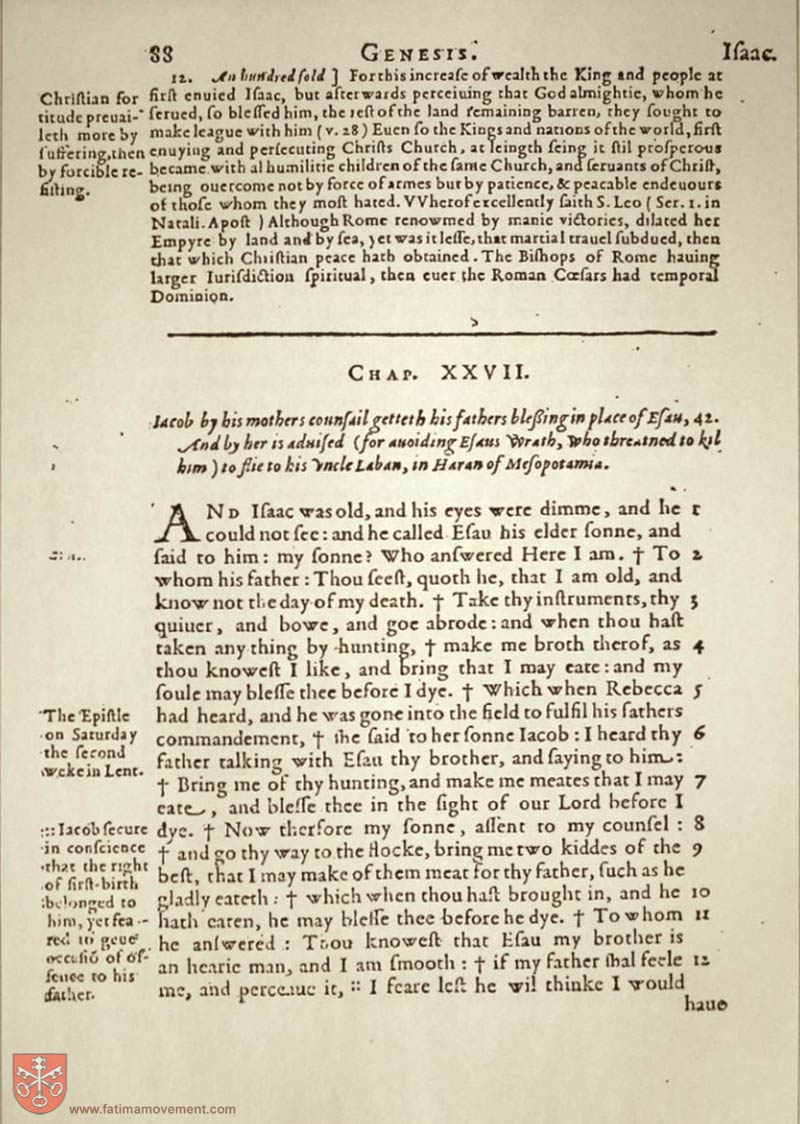 88 GENESIS. Iſaac.
12. An hundred fold ] For this increaſe of wealth the King and people at
firſt enuied Iſaac, but afterwards perceiuing that God almightie, whom he
ſerued, ſo bleſſed him, the reſt of the land remaining barren, they ſought to
make league with him ( v. 28 ) Euen ſo the Kings and nations of the world, firſt
enuying and perſecuting Chriſts Church, at leingth ſeing it ſtil proſperous
became with al humilitie children of the ſame Church, and ſeruants of Chriſt,
being ouercome not by force of armes but by patience, & peacable endeuours
of thoſe whom they moſt hated. VVherof excellently ſaith S. Leo ( Ser. 1. in
Natali. Apoſt ) Although Rome renowmed by manie victories, dilated her
Empyre by land and by ſea, yet was it leſſe, that martial trauel ſubdued, then
that which Chriſtian peace hath obtained. The Biſhops of Rome hauing
larger Iurisdiction ſpiritual, then euer the Roman Cœſars had temporal
Dominion.
Chriſtian for
titude preuai-
leth more by
ſuffering, then
by forcible re-
ſiſting.
CHAP. XXVII.
Iacob by his mothers counſail getteth his fathers bleßing in place of Eſau, 42.
And by her is aduiſed (for auoiding Eſaus wrath, who threatned to kil
him ) to flie to his vncle Laban, in Haran of Meſopotamia.
AND Iſaac was old, and his eyes were dimme, and he 1
could not ſee: and he called Eſau his elder ſonne, and
ſaid to him: my ſonne? Who anſwered Here I am. † To 2
whom his father: Thou ſeeſt, quoth he, that I am old, and
know not the day of my death. † Take thy inſtruments, thy 3
quiuer, and bowe, and goe abrode: and when thou haſt
taken any thing by hunting, † make me broth therof, as 4
thou knoweſt I like, and bring that I may eate: and my
ſoule may bleſſe thee before I dye. † Which when Rebecca 5
had heard, and he was gone into the field to fulfil his fathers
commandement, † ſhe ſaid to her ſonne Iacob: I heard thy 6
father talking with Eſau thy brother, and ſaying to him:
† Bring me of thy hunting, and make me meates that I may 7
eate, and bleſſe thee in the ſight of our Lord before I
dye. † Now therfore my ſonne, aſſent to my counſel: 8
† and go thy way to the flocke, bring me two kiddes of the 9
beſt, that I may make of them meat for thy father, ſuch as he
gladly eateth: † which when thou haſt brought in, and he 10
hath eaten, he may bleſſe thee before he dye. † To whom 11
he anſwered: Thou knoweſt that Eſau my brother is
an hearie man, and I am ſmooth: † if my father ſhal feele 12
me, and perceaue it, :: I feare leſt he wil thinke I would
haue
The Epiſtle
on Saturday
the ſecond
weke in Lent.
::: Iacob ſecure
in conſcience
that the right
of firſt-birth
belonged to
him, yet fea-
red to geue
occaſiō of of-
fence to his
father.
www.fatimamovement.com